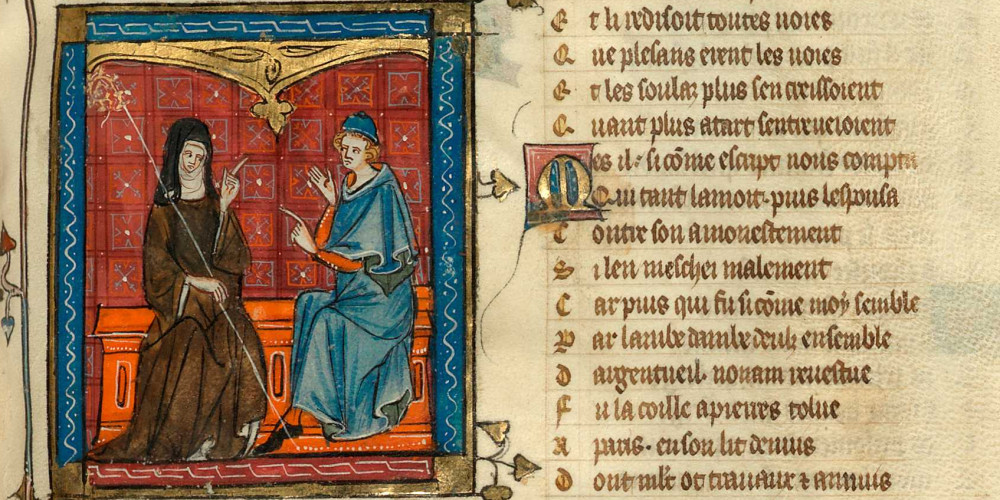 E t li redisoit toutes uoies
Q ue plesans erent les uoies
E t les soulaz plus sen croissoient
Q uant plus atart sentreueioient
Mes il· si cõme escript nous compta
Q ui tant lamoit· puis lespousa
C ontre son amonestement
S i len meschei malement
C ar puis qui fu si cõme moy semble
P ar lambe dambe deulz ensemble
D argentueil· nonain reuestue
F u la coille a pierres tolue
A paris· en son lit de nuis
D ont mlt ot trauaux ⁊ annuis